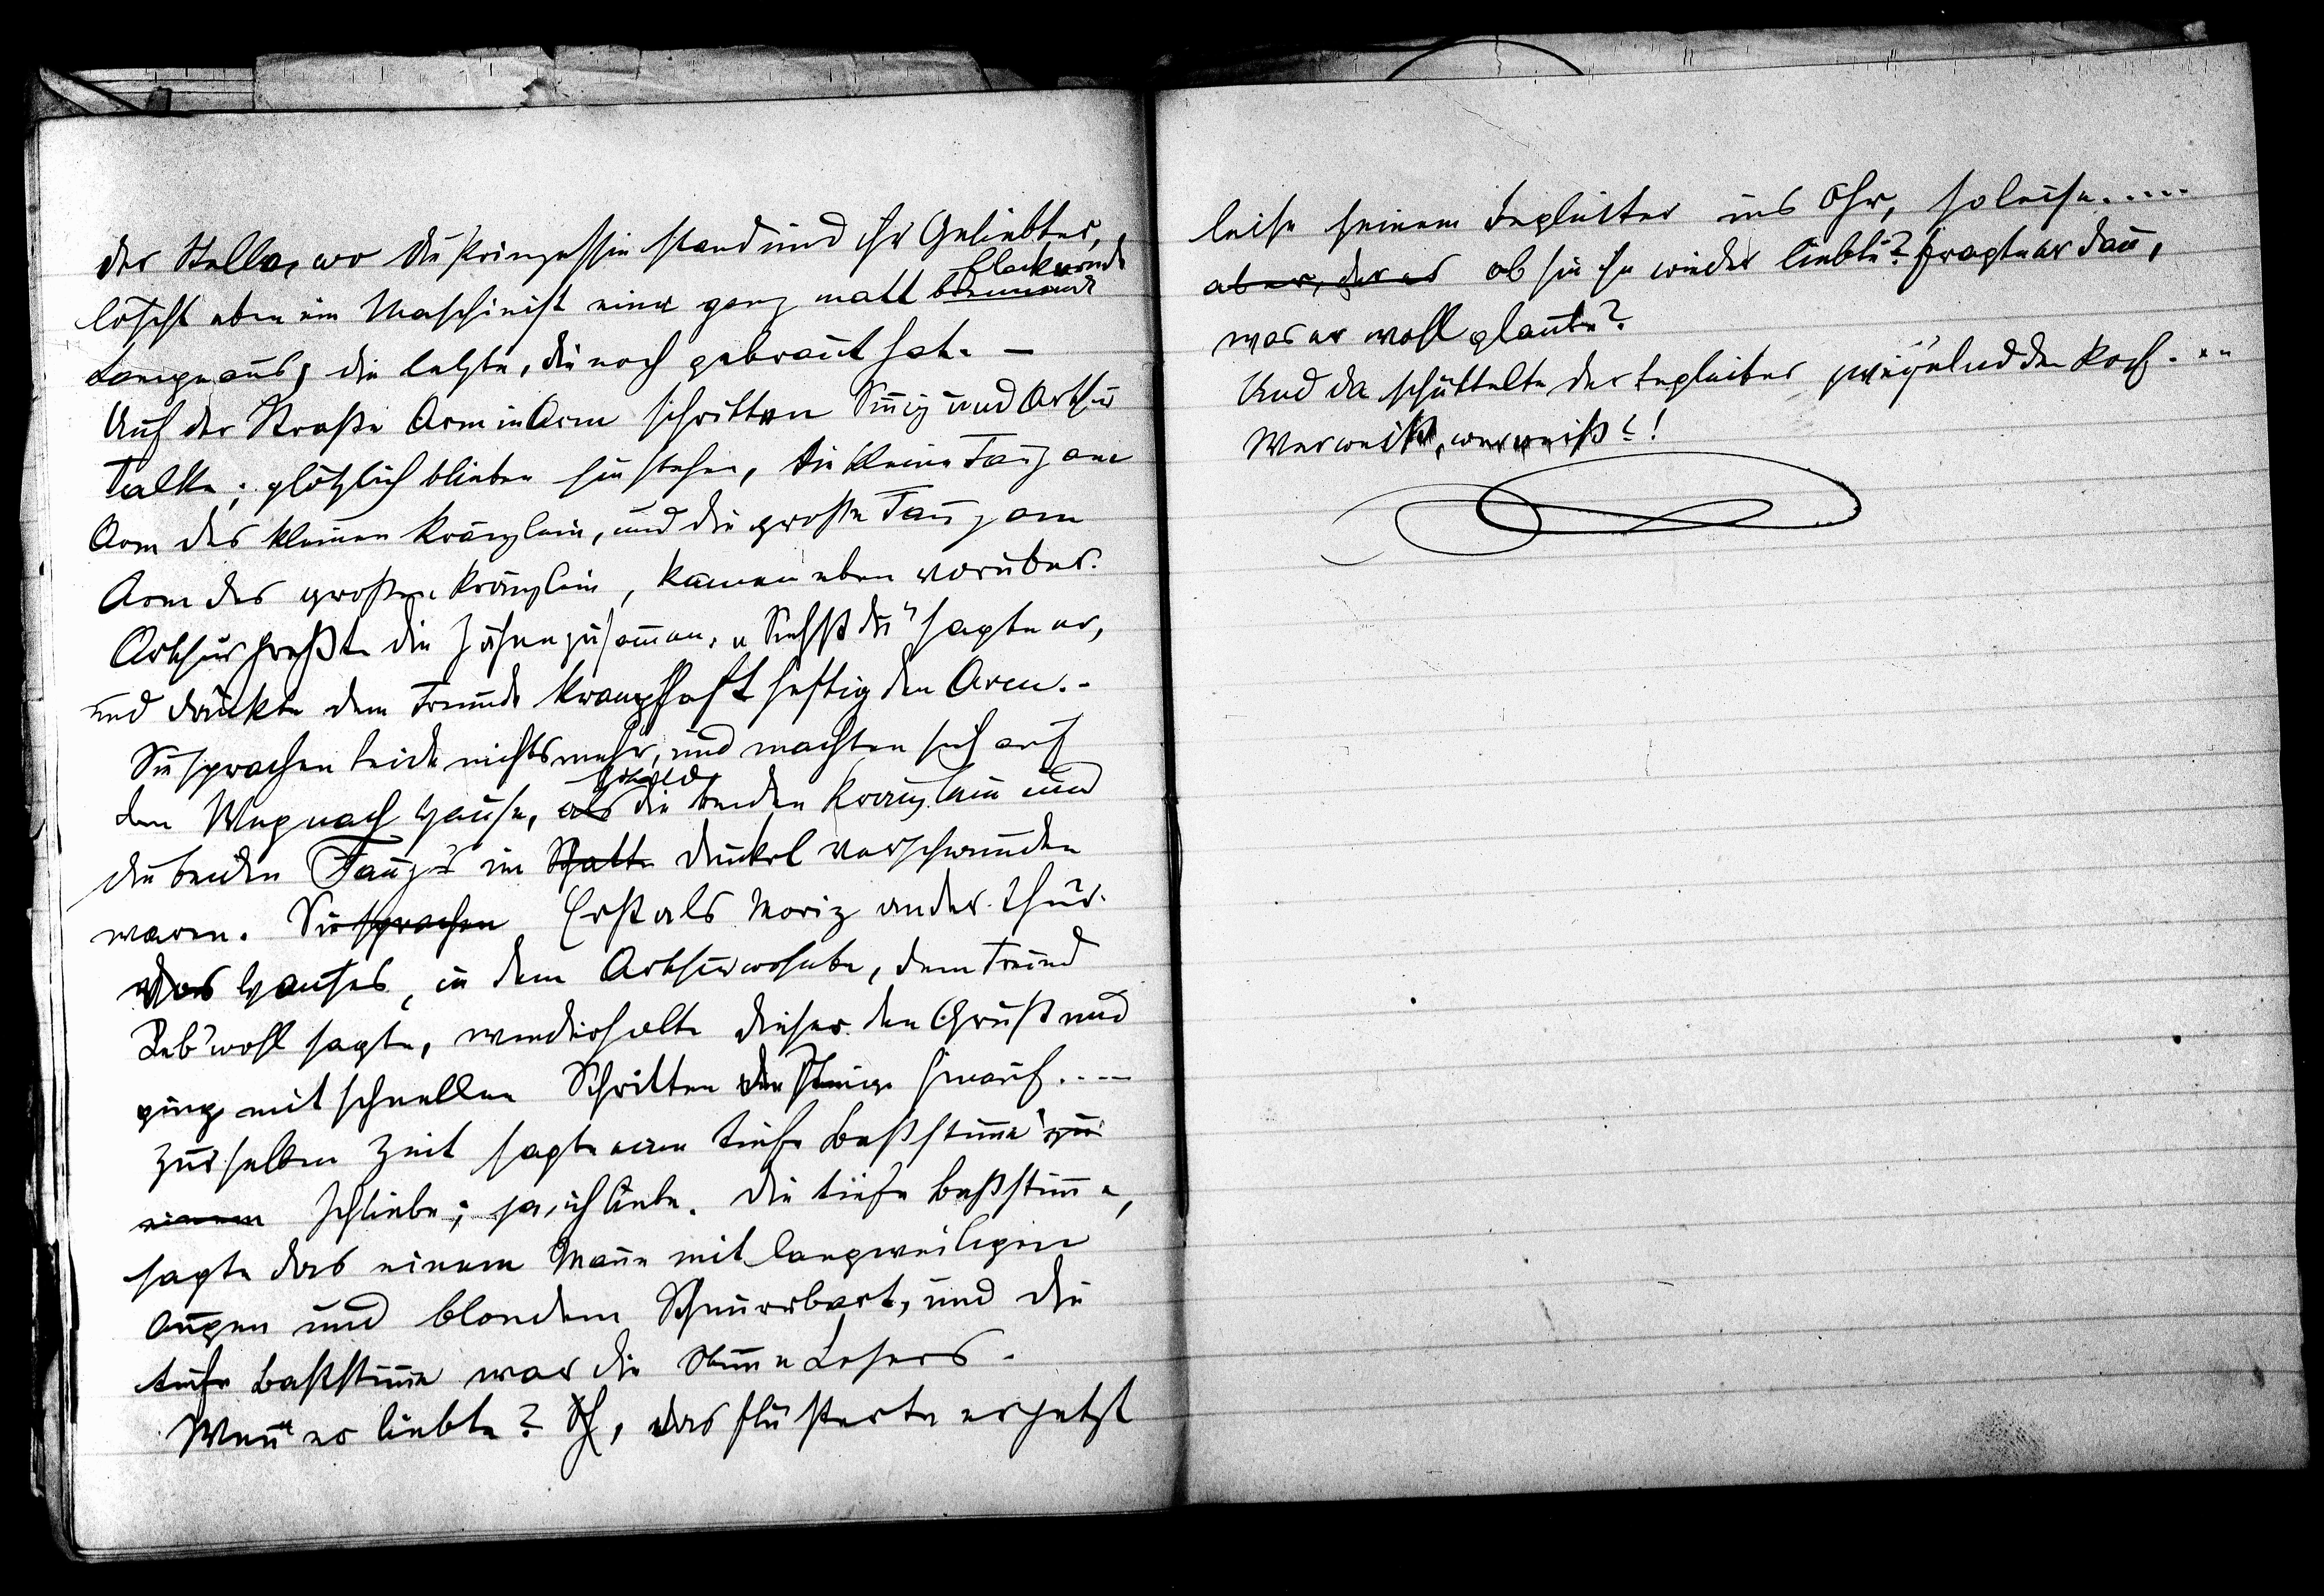 der Stelle, wo die Prinzessin stand und ihr Geliebter,
flackernde
löscht eben ein Maschinist eine ganz matt brennende
Lampe aus, die letzte, die noch gebrannt hat. –
Auf der Straße Arm in Arm schritten und Arthur
; plötzlich blieben sie stehen, die kleine am
Arm des kleinen Kränzlein, und die große am
Arm des großen Kränzlein, kamen eben vorüber.
Arthur preßte die Zähne zusammen. „Siehst du" sagte er,
und drückte dem Freunde krampfhaft heftig den Arm. –
Sie sprachen beide nichts mehr, und machten sich auf
sobald
den Weg nach Hause, als die beiden Kränzlein und
die beiden im Schatte Dunkel verschwunden
waren. Sie sprachen Erst als Moriz an der Thür
des Hauses, in dem Arthur wohnte, dem Freund
Leb' wohl sagte, wiederholte dieser den Gruß und
ging mit schnellen Schritten die Stiege hinauf....
Zur selben Zeit sagte eine tiefe Baßstimme zu
einem Ich liebe; ja, ich liebe. Die tiefe Baßstimme,
sagte das einem Manne mit langweiligen
Augen und blondem Schnurrbart, und die
tiefe Baßstimme war die Stimme Lesers.
Wenn er liebte? , das flüsterte er jetzt
leise seinem Begleiter ins Ohr, so leise.....
aber, der es ob sie ihn wieder liebte? fragte er dann,
was er wohl glaubte?
Und da schüttelte der Begleiter zweifelnd den Kopf...
Wer weiß, wer weiß?!